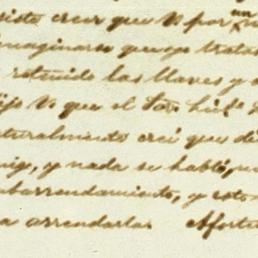 creer que V por un
imaginarse que yo tratas
retenido las llaves y
dijo V que el Sor
naturalmente creí que de
y nada se habló,
subarrendamiento, y esto
a arrendarla Afortu